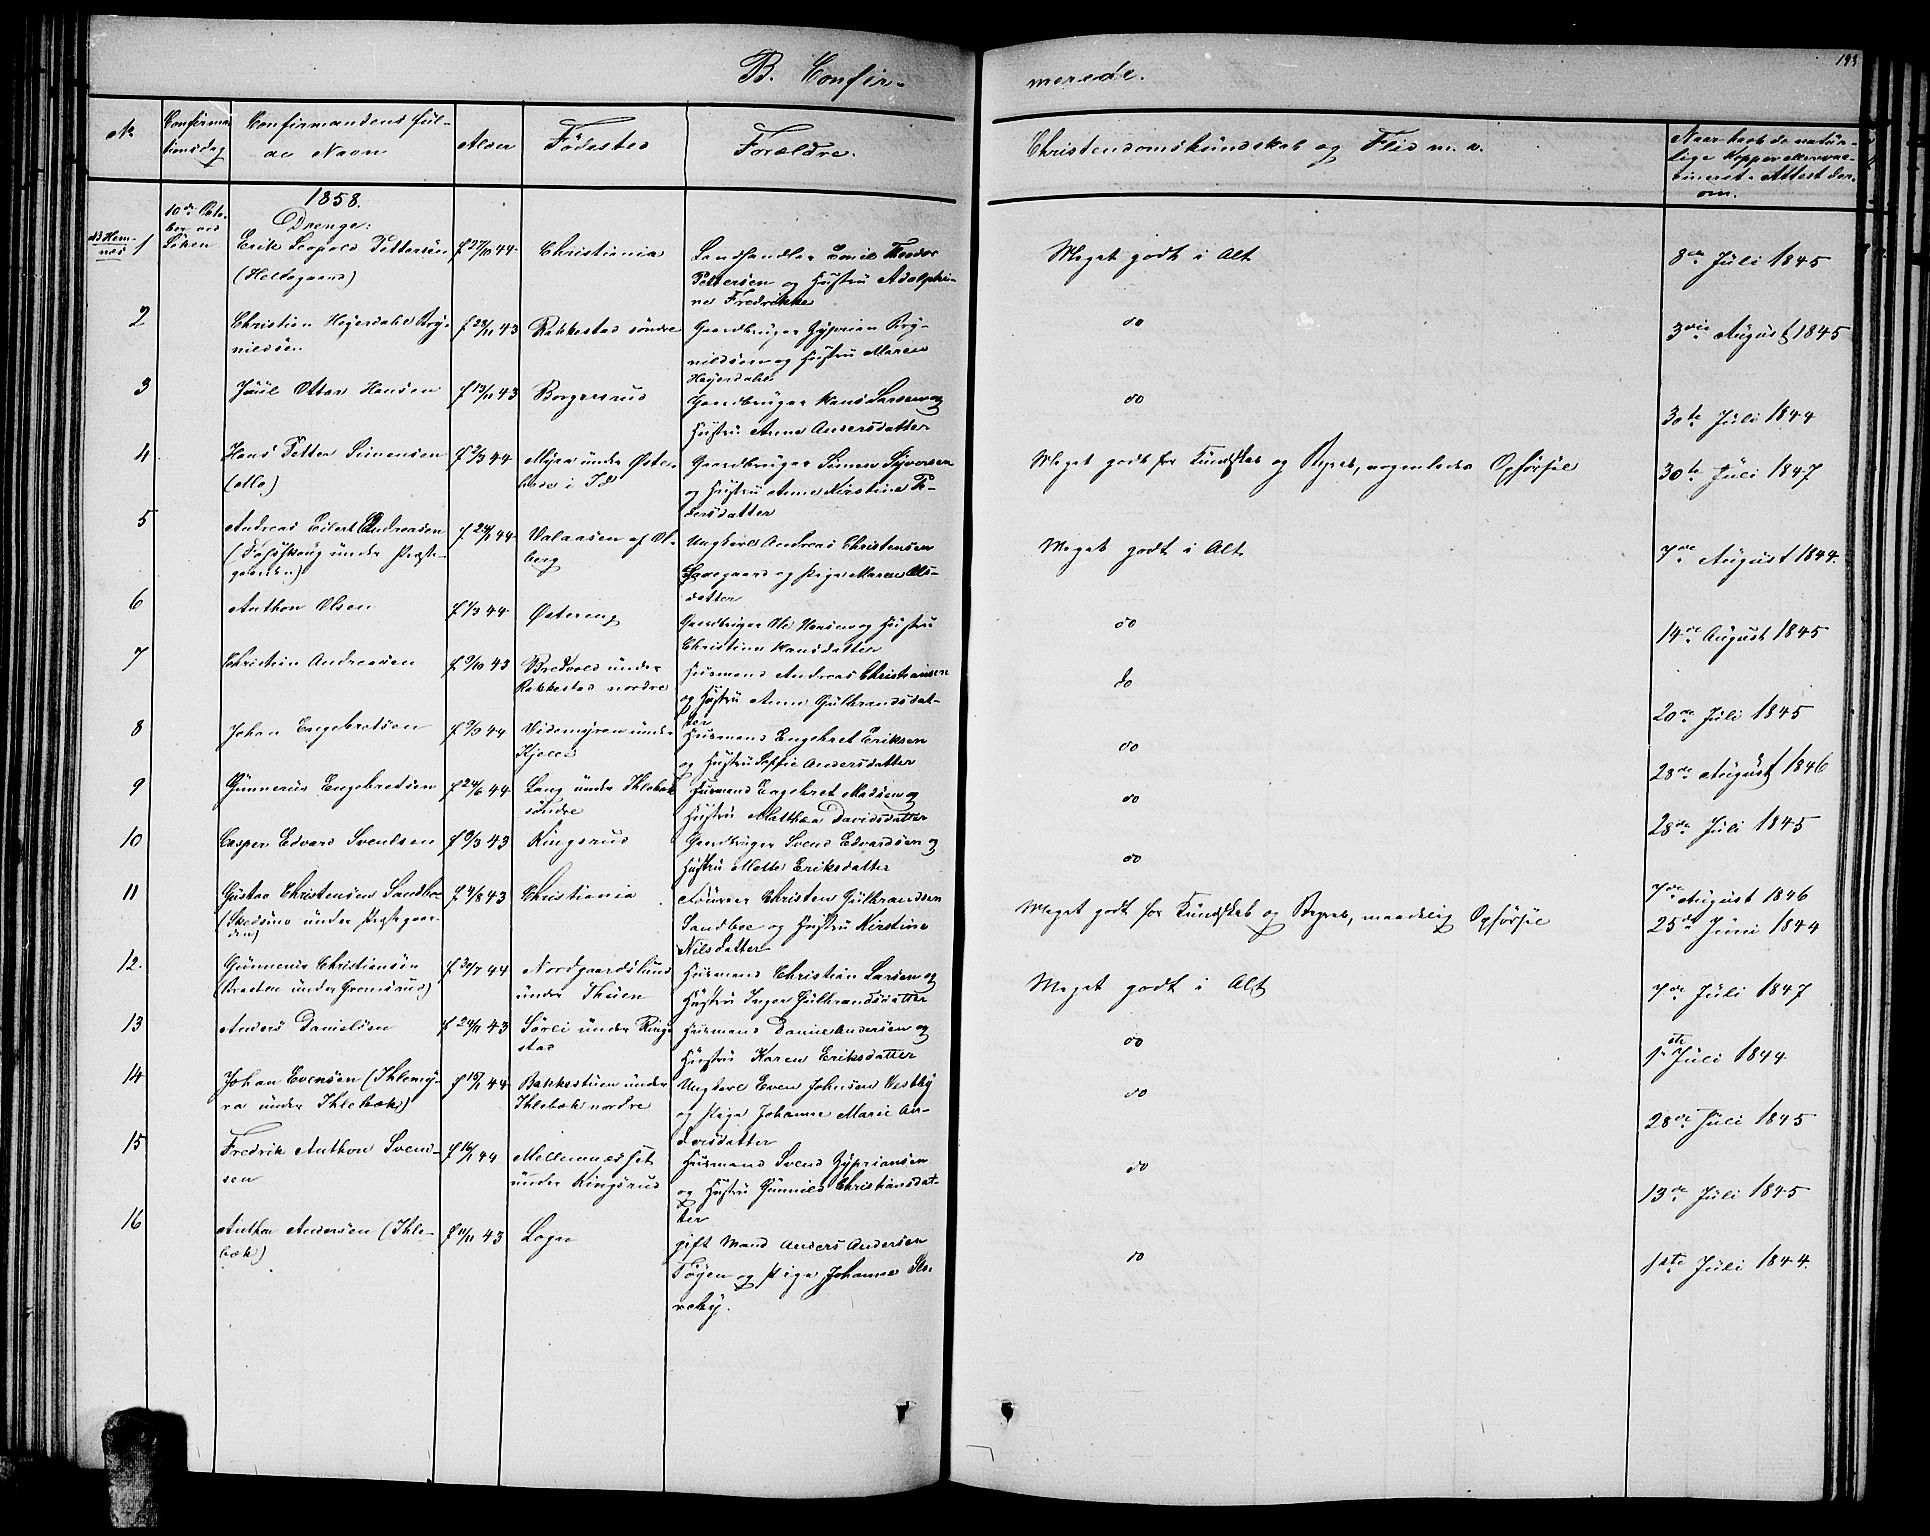 B. Confir-
merede.
193
No
Confirma-
tionsdag
Confirmandens ful-
de Navn
Alder
Födested
Forældre.
Christendomskundskab og Flid m. v.
Naar havt de natur-
lige Kopper eller vac-
cineret. Attest der-
om.
1858.
Drenge:
1
10de Octo-
ber ved
Löken
Erik Leopold Pettersen
(Heldegaard)
f 27/10 44
Christiania
Landhandler Emil Theodor
Pettersen og Hustru Adolphi-
ne Fredrikke
Meget godt i Alt
8de Juli 1845
2
Christian Heyerdahl Bry-
nildsen
f 28/11 43
Rakkestad söndre
Gaardbruger Gyprian Bry-
nildsen og Hustru Maren
Heyerdahl
do
3die August 1845
3
Juul Otter Hansen
f 13/11 43
Borgersrud
Gaardbruger Hans Larsen og
Hustru Anne Andersdatter
do
30te Juli 1844
4
Hans Petter Simensen
(Mo)
f 2/3 44
Myra under Öster-
i Id
Gaardbruger Simen Syversen
og Hustru Anne Kirstine Pe-
dersdatter
Meget godt for Kundskab og Begreb, nogenledes Opförsel
30te Juli 1847
5
Andreas Eilert Andreasen
(Fossskoug under Præste-
gaarden)
f 24/1 44
Valaasen af Ol-
berg
Ungkarl Andreas Christensen
og Pige Maren Ols-
datter
Meget godt i Alt
7de August 1844.
6
Anthon Olsen
f 1/3 44
Östereng
Gaardbruger Ole Hansen og Hustru
Christine Hansdatter
do
14de August 1845
7
Christian Andreasen
f 9/10 43
Bredvold under
Rakkestad nordre
Husmand Andreas Christiansen
og Hustru Anne Gulbrandsdat-
ter
do
20de Juli 1845
8
Johan Engebretsen
f 9/9 44
Videmyren under
Kjelle
Husmand Engebret Eriksen
og Hustru Sophie Andersdatter
do
28de August 1846
9
Gunnerus Engebretsen
f 24/6 44
Lang under Ihlebæk
söndre
Husmand Engebret Madsen og
Hustru Mathea Davidsdatter
do
28de Juli 1845
10
Casper Edvard Svendsen
f 6/3 43
Kingsrud
Gaardbruger Svend Edvardsen og
Hustru Mette Eriksdatter
do
7de August 1846
11
Gustav Christensen Sandboe
(Skedsmo under Præstegaar-
den)
f 4/8 43
Christiania
Christen Gulbrandsen
Sandboe og Hustru Kirstine
Nilsdatter
Meget godt for Kundskab og Begreb, maadelig Opförsel
25de Juni 1844
12.
Gunnerus Christiansen
(Braaten under Gromsrud)
f 30/7 44
Nordgaardslund
under Thuen
Husmand Christian Larsen og
Hustru Inger Gulbrandsdatter
Meget godt i Alt
7de Juli 1847
13
Anders Danielsen
f 24/11 43
Sörli under Ring-
stad
Husmand Daniel Andersen og
Hustru Karen Eriksdatter
do
1ste Juli 1844
14
Johan Evensen (Ihlemy-
ra under Ihlebæk)
f 15/1 44
Bakkestuen under
Ihlebæk nordre
Ungkarl Even Johnsen Vestby
og Pige Johanne Marie An-
dersdatter
do
28de Juli 1845
15
Fredrik Anthon Svend-
sen
f 16/1 44
Mellemnæsset
under Kingsrud
Husmand Svend Gypriansen
og Hustru Gunnild Christiansdat-
ter
do
13de Juli 1845
16
Anthon Andersen (Ihle-
bæk)
f 11/11 43
Logn
gift Mand Anders Andersen
Töyen og Pige Johanne Sko-
reby.
do
1ste Juli 1844.